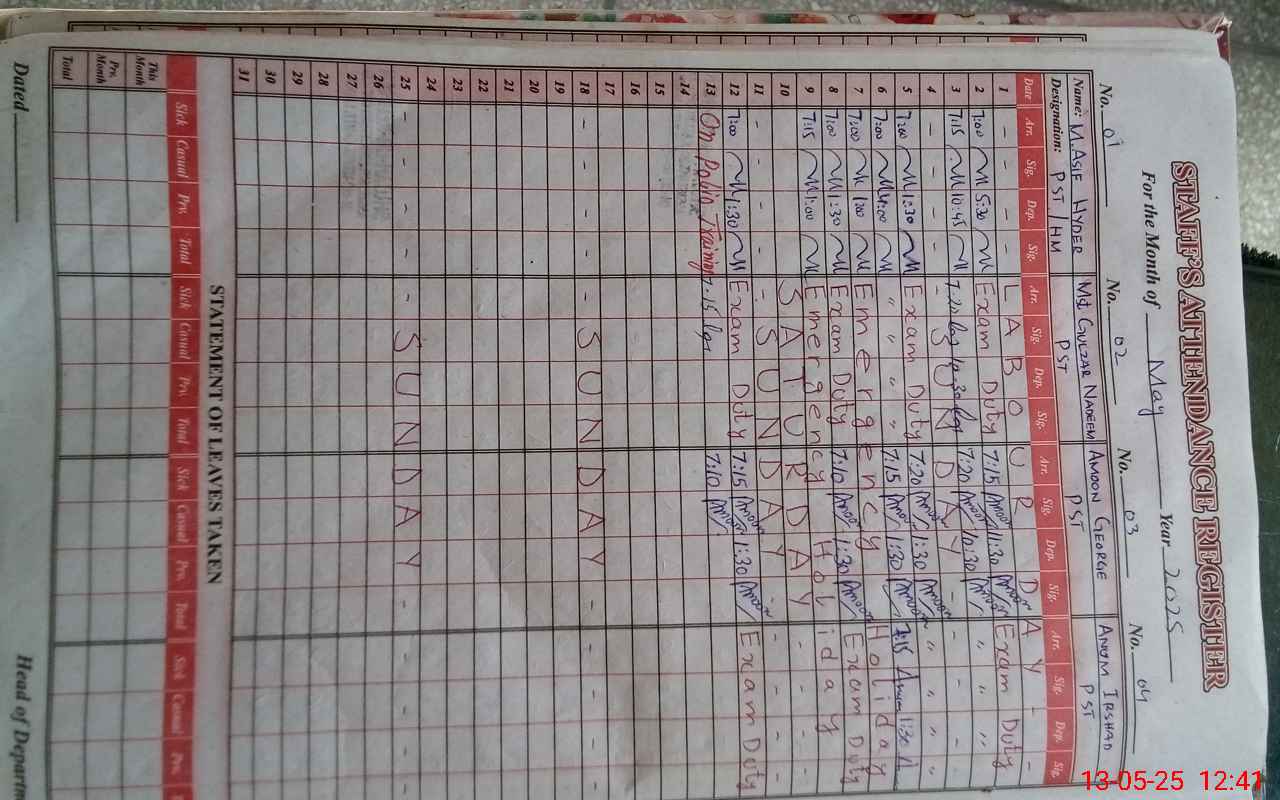 STAFF'S ATTENDANCE REGISTER
For the Month of May Year 2025
No. 01 No. 02 No. 03 No. 04
Name: M.ASIF HYDER Md. GULZAR NADEEM AMOON GEORGE ANUM IRSHAD
Designation: PST/HM PST PST PST
Date Arr. Sig. Dep. Sig. Arr. Sig. Dep. Sig. Arr. Sig. Dep. Sig. Arr. Sig. Dep. Sig.
1 LABOUR DAY -
2 7:00 5:30 Exam Duty 7:15 Amoon 1:30 Amoon Exam Duty
3 7:15 10:45 7:20 10:30 7:20 Amoon 10:30 Amoon " " "
4 - - - - - SUNDAY - - - -
5 7:00 1:30 Exam Duty 7:20 Amoon 1:30 Amoon " " " "
6 7:00 1:00 " " " " 7:15 Amoon 1:30 Amoon 7:15 1:30
7 7:00 1:00 Emergency Holiday
8 7:00 1:30 Exam Duty 7:10 Amoon 1:30 Amoon Exam Duty
9 7:15 1:00 Emergency Holiday
10 SATURDAY - - - -
11 - - - - - SUNDAY - - - - -
12 7:00 1:30 Exam Duty 7:15 Amoon 1:30 Amoon Exam Duty
13 On Polio Training 7:15 7:10 Amoon
14
15
16
17
18 - - - - - SUNDAY - - - - -
19
20
21
22
23
24
25 - - - - - SUNDAY - - - - -
26
27
28
29
30
31
STATEMENT OF LEAVES TAKEN
Sick Casual Prv. Total Sick Casual Prv. Total Sick Casual Prv. Total Sick Casual Prv.
This Month
Prv. Month
Total
Dated Head of Departm
13-05-25 12:41